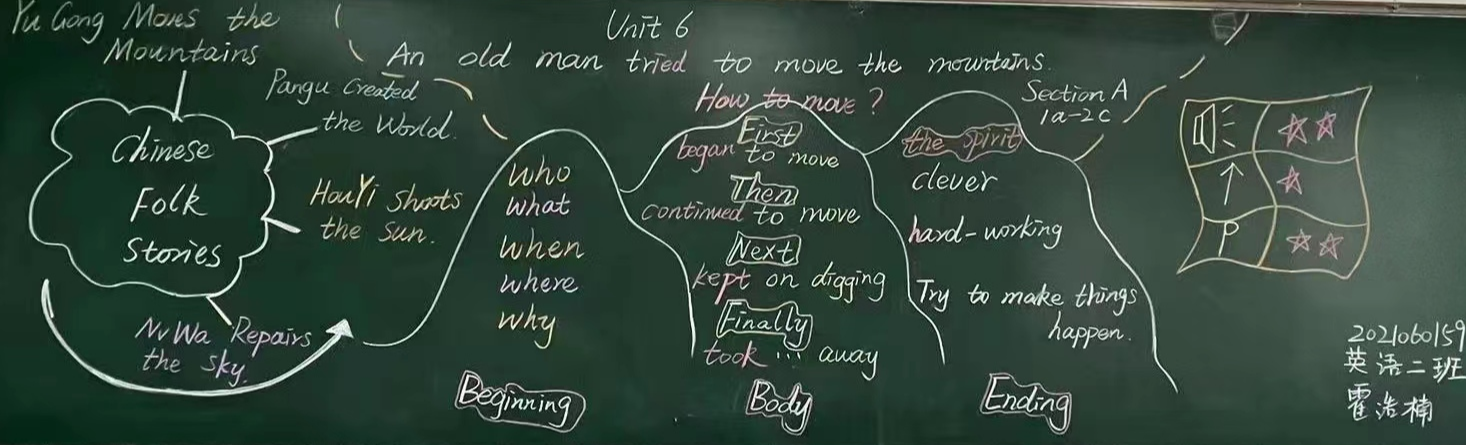 Unit 6
An old man tried to move the mountains.
Section A
1a-2c
Yu Gong Moves the
Mountains
Chinese
Folk
Stories
Pangu Created
the World.
HouYi shoots
the sun.
NvWa Repairs
the sky.
who
what
when
where
why
Beginning
How to move?
First
began to move
Then
continued to move
Next
kept on digging
Finally
took ... away
Body
the spirit
clever
hard-working
Try to make things
happen.
Ending
P
2021060159
英语二班
霍浩楠